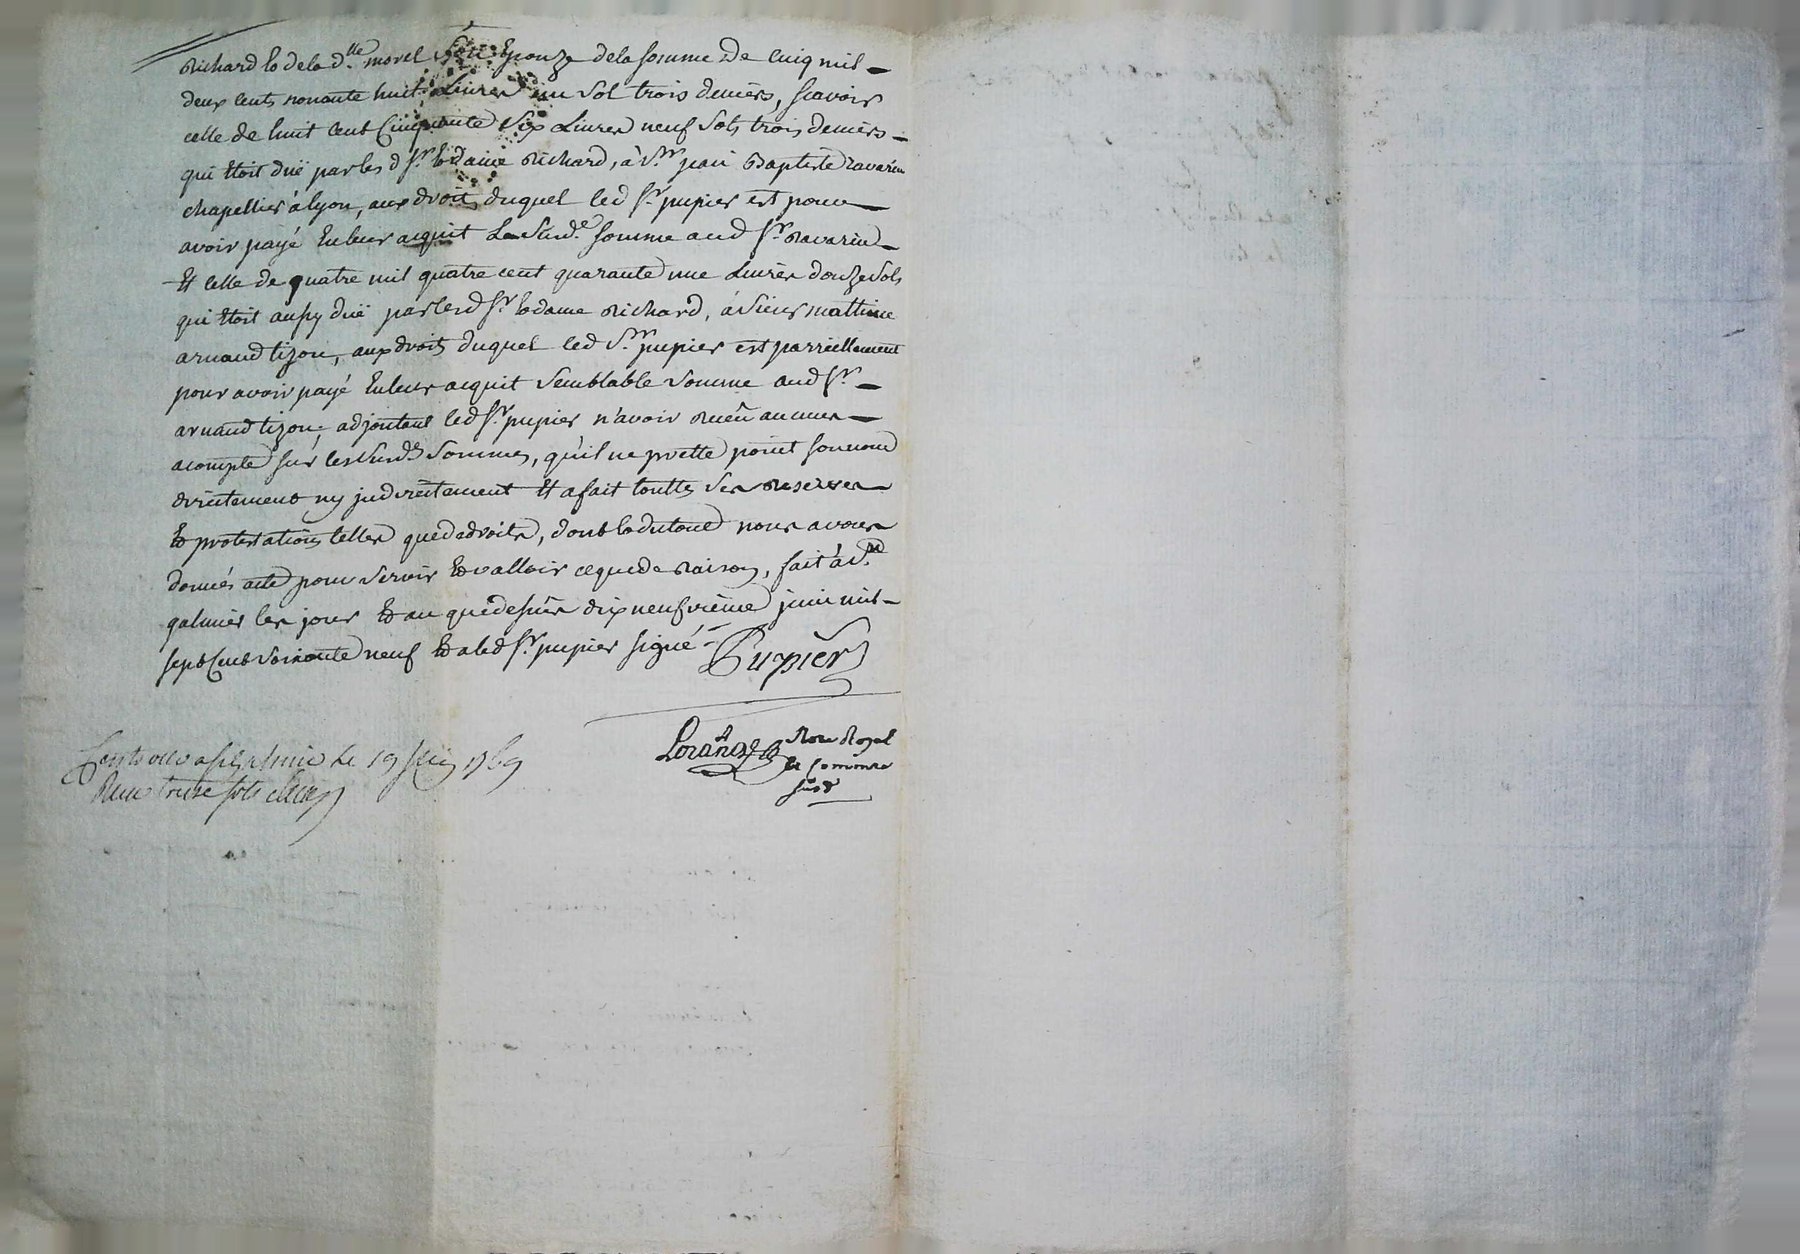 Richard & de la d.lle morel son Epouze de la somme De Cinq mil
deux cents nonante huit Livres un Sol trois deniers, scavoir
celle de huit Cent Cinquante Six Livres neuf Sols trois deniers
qui Etoit duë par les d Sr. & daine Richard, à Sr. jean Baptiste Ravarin
chapellier à lyon, aux droits duquel led Sr. pupier est pour
avoir payé En leur acquit La Susd.e somme aud Sr. Ravarin
Et celle de quatre mil quatre cent quarante une Livres douze Sols
qui Etoit aussy duë par lesd Sr. & dame Richard, à Sieur mathieu
arnaud tizon, aux droits duquel led Sr. pupier est parreillement
pour avoir payé En leur acquit Semblable Somme aud Sr.
arnaud tizon, adjoutant led Sr. pupier n'avoir Reçû aucun
acompte sur les Susd.es Sommes, qu'il ne prette point son nom
directement ny indirectement Et a fait touttes Ses Reserves
& protestations telles que de droits, dont & du tout nous avons
donnés acte pour Servir & valloir ce que de Raison, fait à St.
galmier les jour & an que dessus dix neufvième juin mil
sept Cent Soixante neuf & a led Sr. pupier signé
Pupier
Lorange Nore Royal
& Commre
susd
le 19 juin 1769
Reçu treize sols